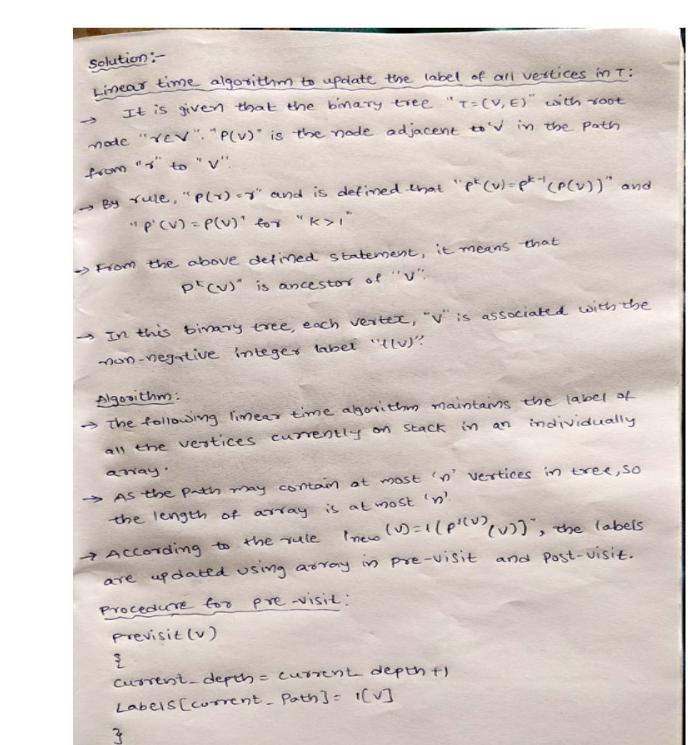 Solution:-
Linear time algorithm to update the label of all vertices in T:
→ It is given that the binary tree "T=(V,E)" with root
node "r∈V". "P(v)" is the node adjacent to 'v' in the path
from "r" to "V".
→ By rule, "P(r)=r" and is defined that "p^k(v)=p^k-1(P(v))" and
"p'(v)=P(v)" for "k>1"
→ From the above defined statement, it means that
p^k(v)" is ancestor of "v".
→ In this binary tree, each vertex, "v" is associated with the
non-negative integer label "l(v)".
Algorithm:
→ The following linear time algorithm maintains the label of
all the vertices currently on stack in an individually
array.
→ As the path may contain at most 'n' vertices in tree, so
the length of array is at most 'n'.
→ According to the rule l new (v)=l(p^l(v)(v))", the labels
are updated using array in pre-visit and post-visit.
Procedure for pre-visit:
previsit(v)
{
current_depth = current depth +1
Labels[current_Path]= l[v]
}